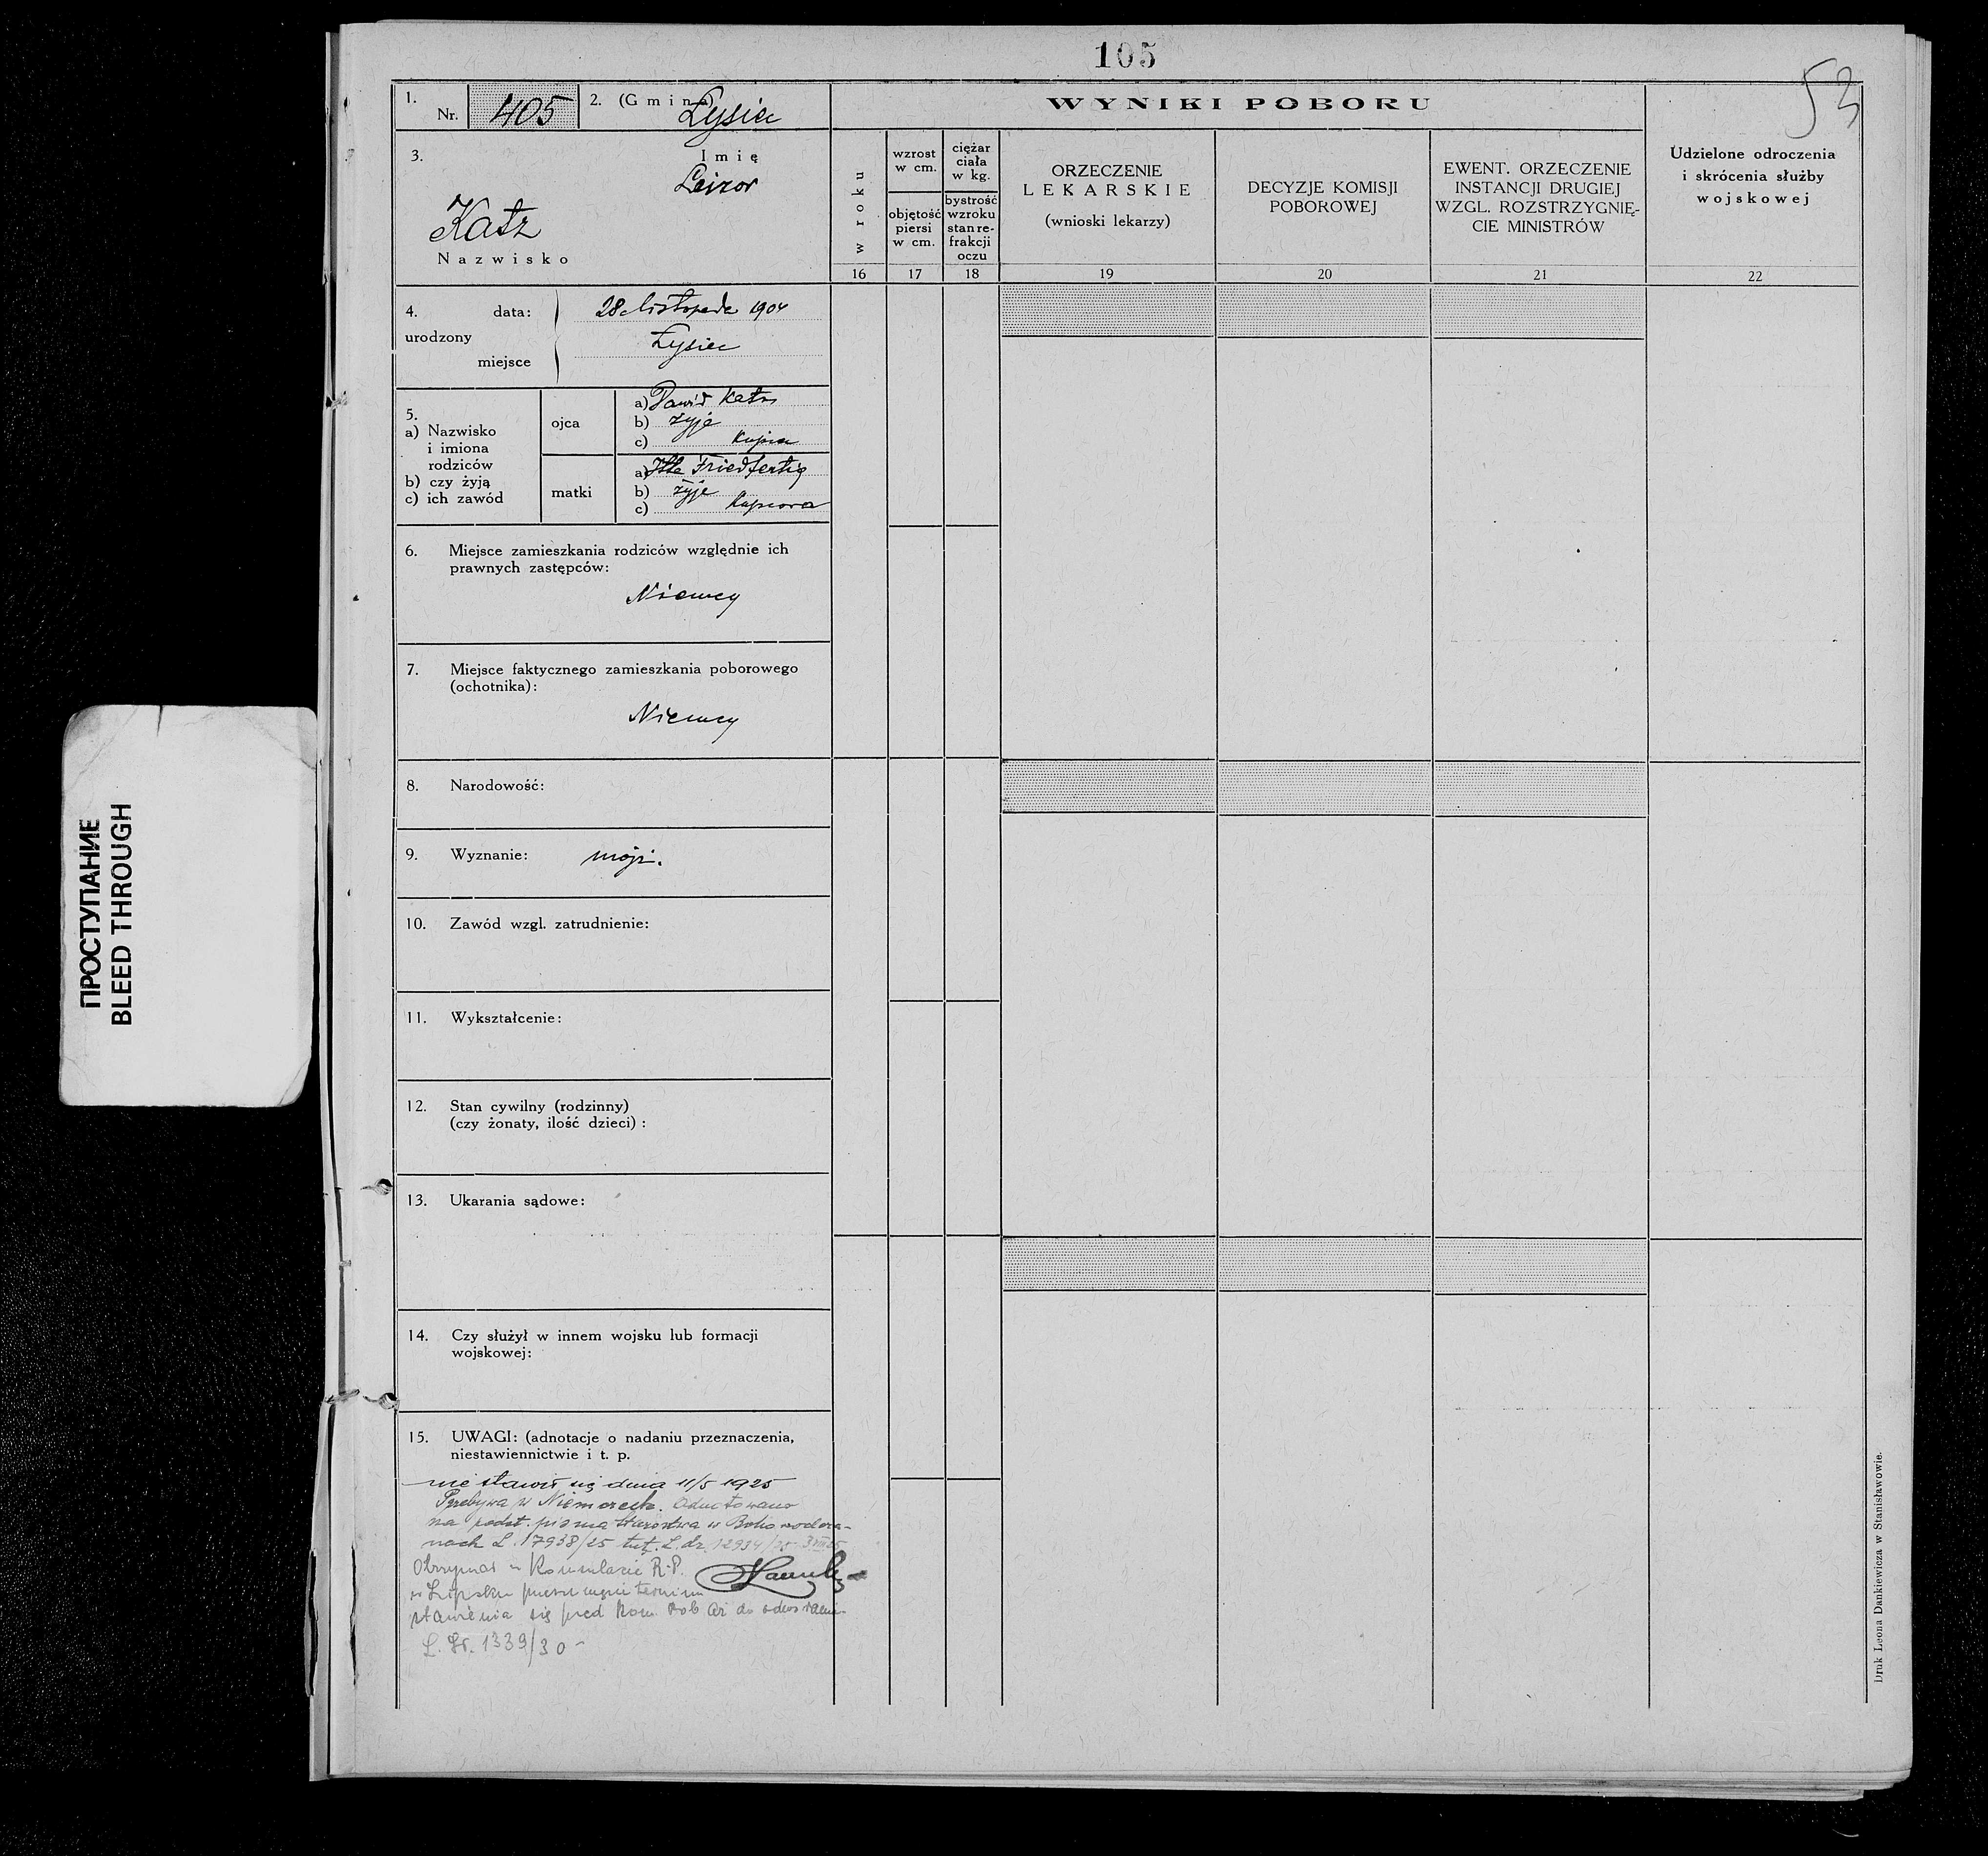 105
53
1.
Nr. 405
2. (Gmina) Łysiec
WYNIKI POBORU
3.
Imię
Leizor
Katz
Nazwisko
w roku
wzrost
w cm.
objętość
piersi
w cm.
ciężar
ciała
w kg.
bystrość
wzroku
stan re-
frakcji
oczu
ORZECZENIE
LEKARSKIE
(wnioski lekarzy)
DECYZJE KOMISJI
POBOROWEJ
EWENT. ORZECZENIE
INSTANCJI DRUGIEJ
WZGL. ROZSTRZYGNIĘ-
CIE MINISTRÓW
Udzielone odroczenia
i skrócenia służby
wojskowej
16 17 18 19 20 21 22
4. data: 28 listopada 1904
urodzony
miejsce Łysiec
5.
a) Nazwisko
i imiona
rodziców
b) czy żyją
c) ich zawód
ojca
a) Dawid Katz
b) żyje
c) kupiec
matki
a) Itte Friedfertig
b) żyje
c) kupcowa
6. Miejsce zamieszkania rodziców względnie ich
prawnych zastępców:
Niemcy
7. Miejsce faktycznego zamieszkania poborowego
(ochotnika):
Niemcy
8. Narodowość:
9. Wyznanie: mojż.
10. Zawód wzgl. zatrudnienie:
11. Wykształcenie:
12. Stan cywilny (rodzinny)
(czy żonaty, ilość dzieci) :
13. Ukarania sądowe:
14. Czy służył w innem wojsku lub formacji
wojskowej:
15. UWAGI: (adnotacje o nadaniu przeznaczenia,
niestawiennictwie i t. p.
nie stawił się dnia 11/5 1925
Przebywa w Niemczech. Odnotowano
na podst. pisma Starostwa w Bohorodcza-
nach L. 17938/25 tut. L. dz. 12934/25
Otrzymał w Konsulacie R.P.
w Lipsku termin
stawienia się przed Kom. Pob
L. dz. 1339/30 -
Druk Leona Dankiewicza w Stanisławowie.
ПРОСТУПАНИЕ
BLEED THROUGH